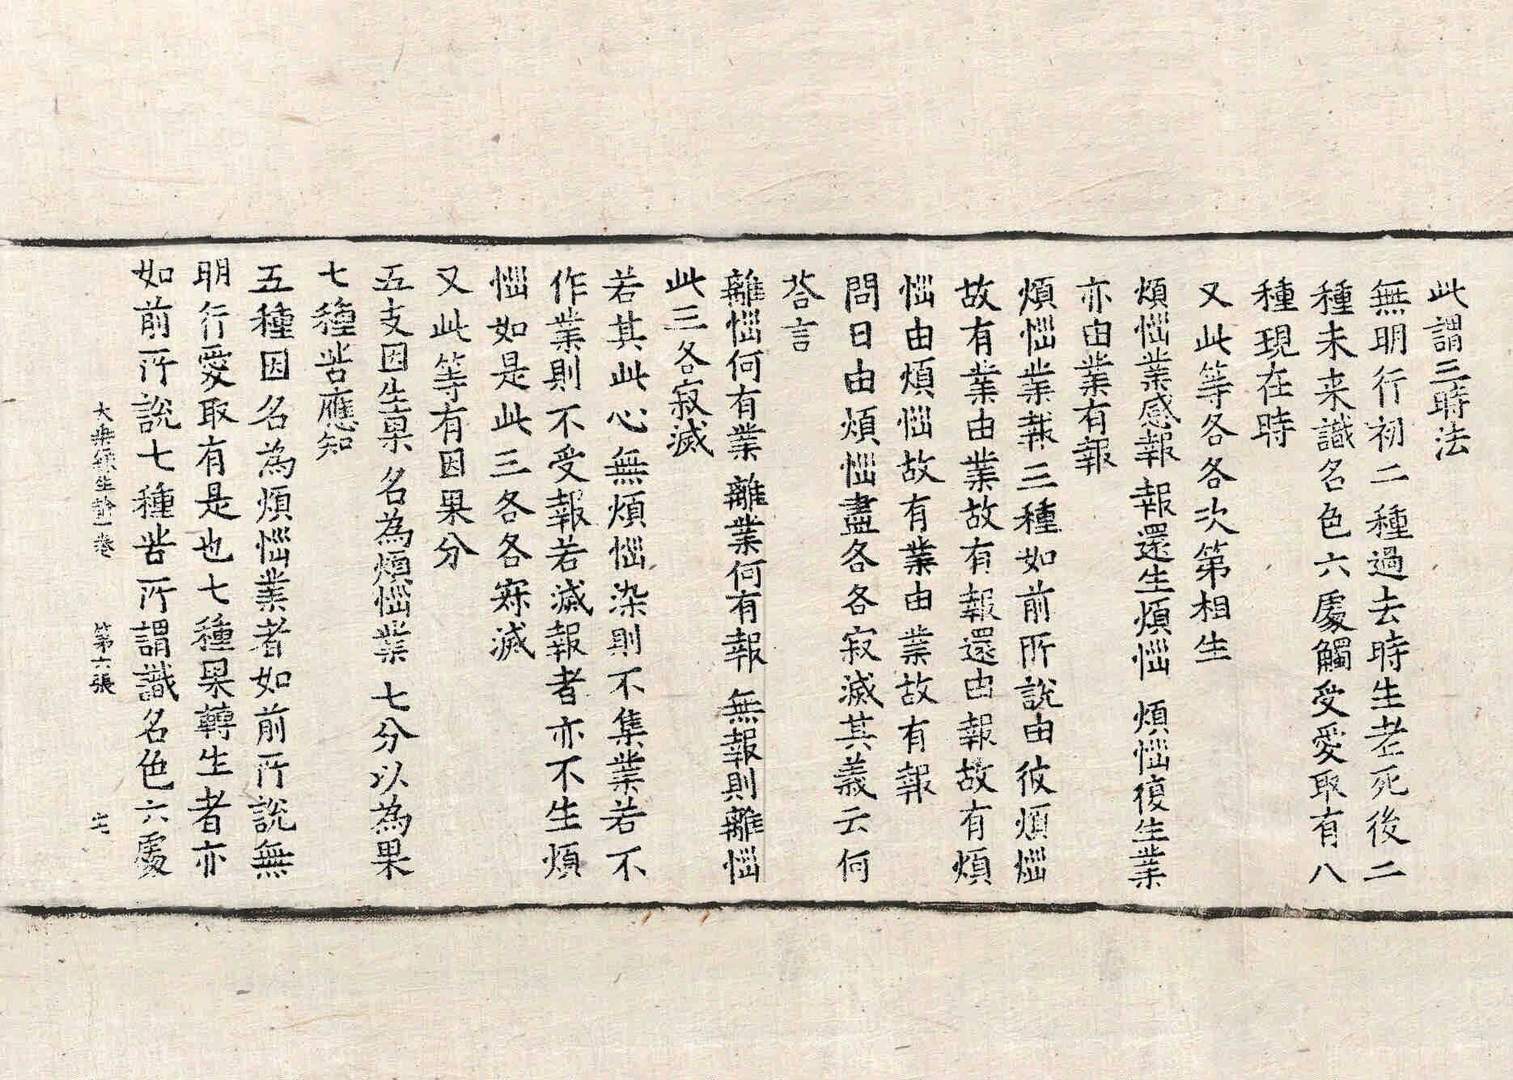 此謂三時法
無明行初二種過去時生老死後二
種未来識名色六處觸受愛取有八
種現在時
又此等各各次第相生
煩惱業感報 報還生煩惱 煩惱復生業
亦由業有報
煩惱業報三種如前所說由彼煩惱
故有業由業故有報還由報故有煩
惱由煩惱故有業由業故有報
問日由煩惱盡各各寂滅其義云何
荅言
離惱何有業 離業何有報 無報則離惱
此三各寂滅
若其此心無煩惱染則不集業若不
作業則不受報若滅報者亦不生煩
惱如是此三各各寂滅
又此等有因果分
五支因生果 名為煩惱業 七分以為果
七種皆應知
五種因名為煩惱業者如前所說無
明行愛取有是也七種果轉生者亦
如前所說七種皆所謂識名色六處
大乘緣生論一卷 第六張